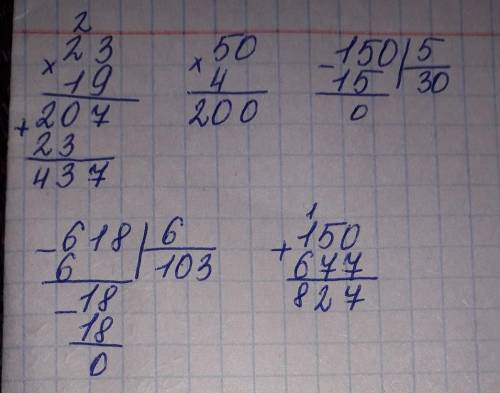 2
× 23
19
207
+ 23
437
× 50
4
200
- 150 | 5
15 | 30
0
- 618 | 6
6 | 103
- 18
18
0
1
+ 150
677
827